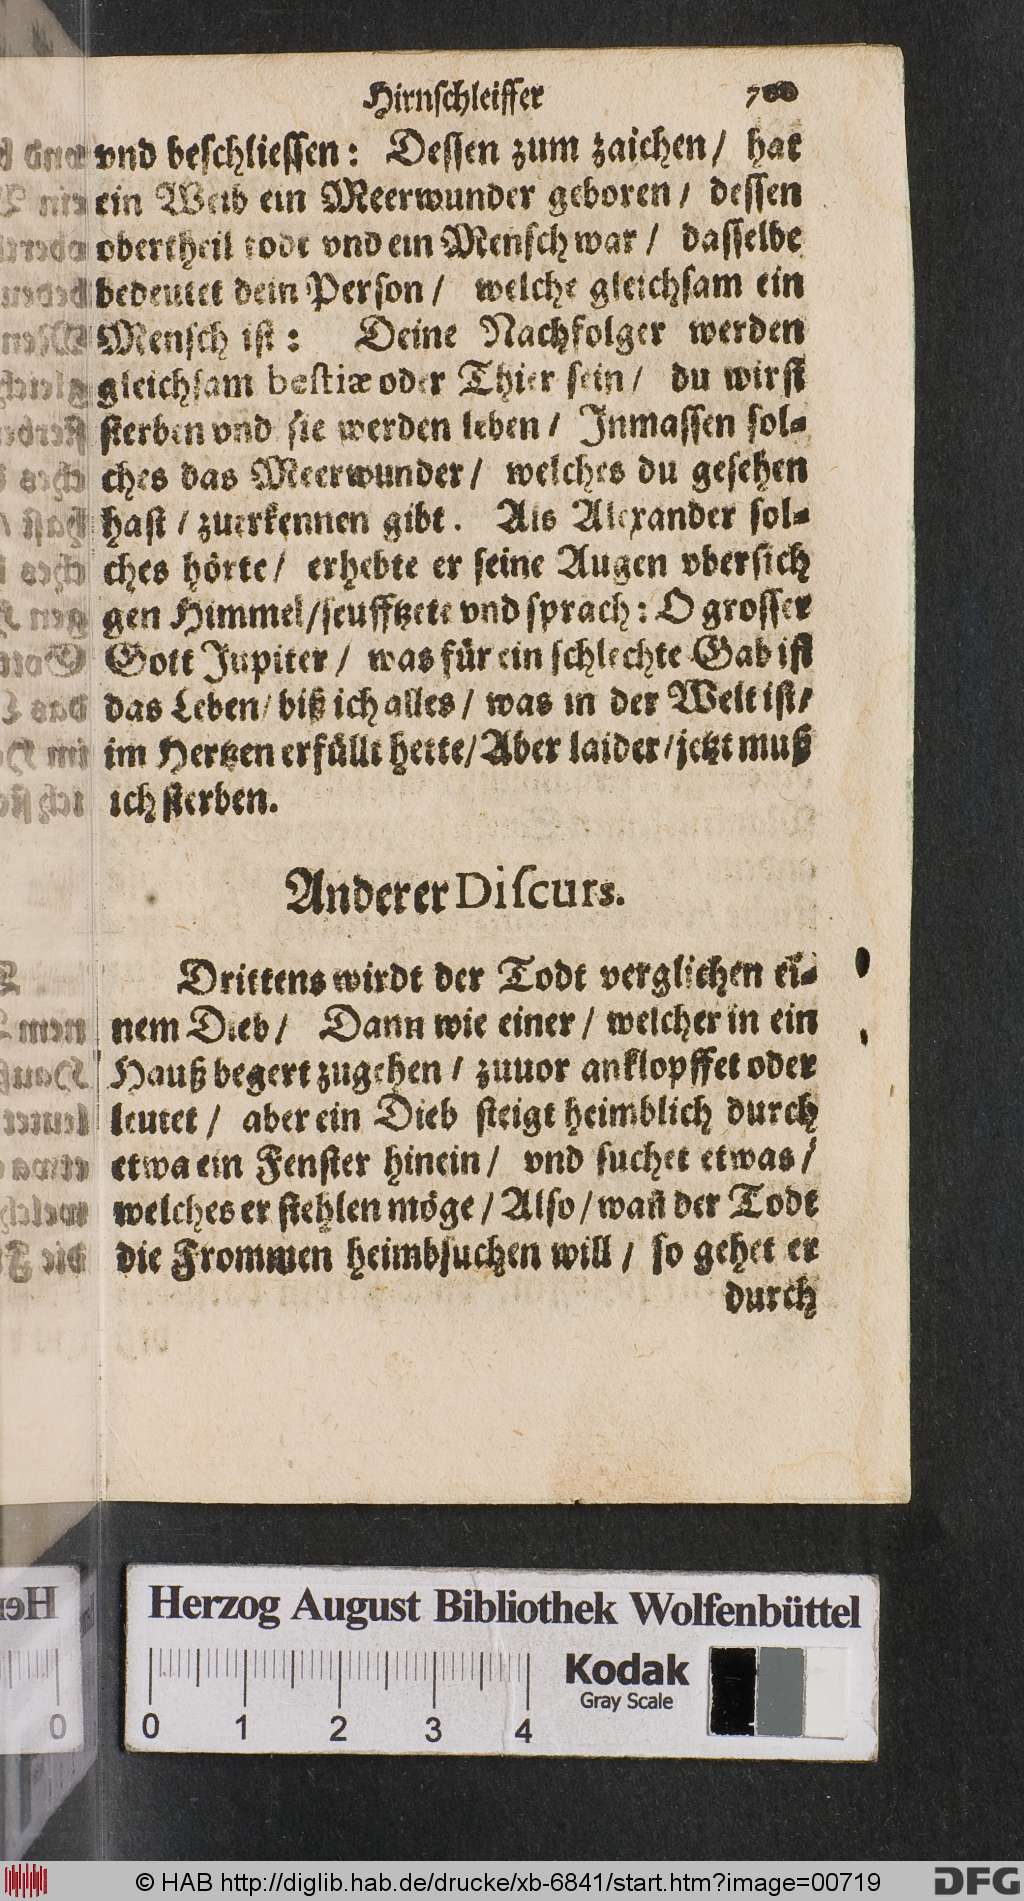 Hirnschleiffer
vnd beschliessen: Dessen zum zaichen/ hat
ein Weib ein Meerwunder geboren/ dessen
obertheil todt vnd ein Mensch war/ dasselbe
bedeutet dein Person/ welche gleichsam ein
Mensch ist: Deine Nachfolger werden
gleichsam bestiæ oder Thier sein/ du wirst
sterben vnd sie werden leben/ Inmassen sol-
ches das Meerwunder/ welches du gesehen
hast/ zuerkennen gibt. Als Alexander sol-
ches hörte/ erhebte er seine Augen vbersich
gen Himmel/ seufftzete vnd sprach: O grosser
Gott Jupiter/ was für ein schlechte Gab ist
das Leben/ biß ich alles/ was in der Welt ist/
im Hertzen erfüllt hette/ Aber laider/ jetzt muß
ich sterben.
Anderer Discurs.
Drittens wirdt der Todt verglichen ei-
nem Dieb/ Dann wie einer/ welcher in ein
Hauß begert zugehen/ zuuor anklopffet oder
leutet/ aber ein Dieb steigt heimblich durch
etwa ein Fenster hinein/ vnd suchet etwas/
welches er stehlen möge/ Also/ wañ der Todt
die Frommen heimbsuchen will/ so gehet er
durch
Herzog August Bibliothek Wolfenbüttel
Kodak
Gray Scale
0 1 2 3 4
© HAB http://diglib.hab.de/drucke/xb-6841/start.htm?image=00719
DFG